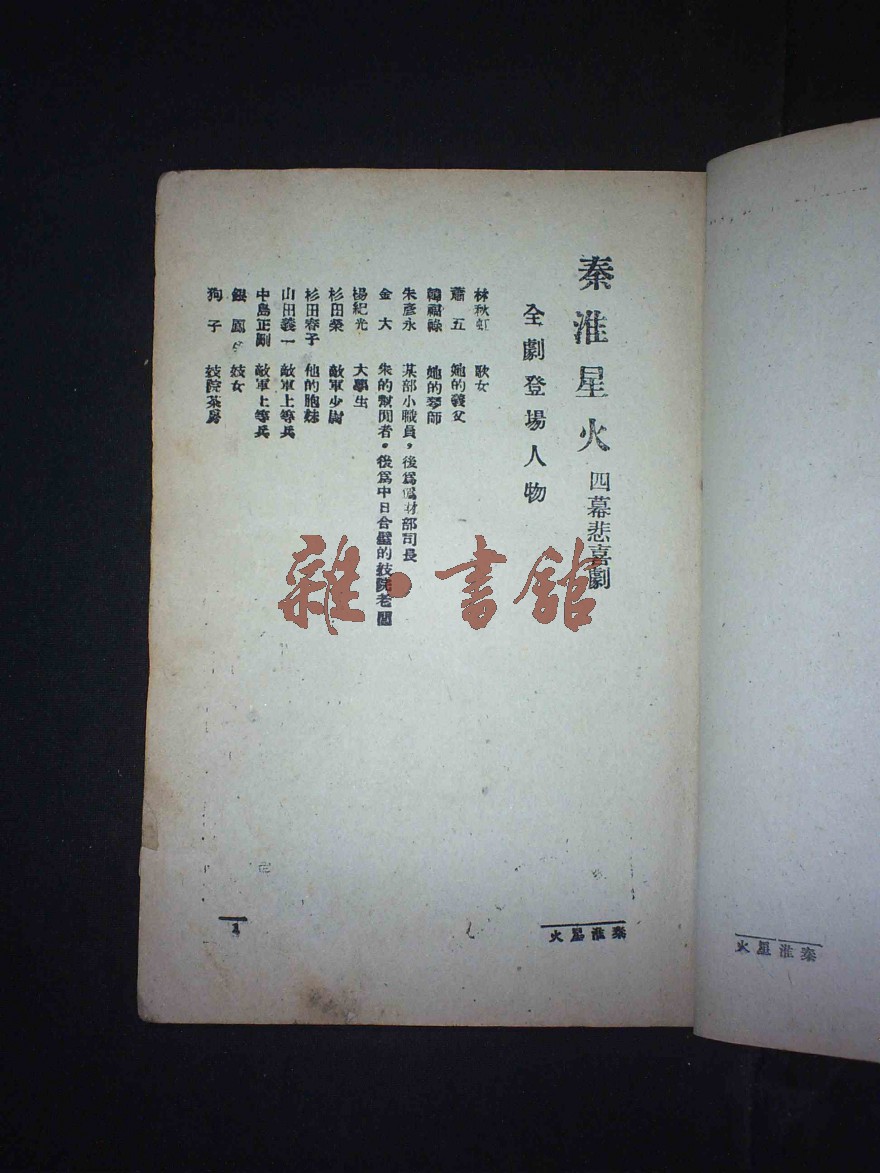 秦淮星火 四幕悲喜劇
全劇登場人物
林秋虹 歌女
蕭五 她的義父
韓福祿 她的琴師
朱彥永 某部小職員，後爲僞財部司長
金大 朱的幫閒者。後爲中日合璧的妓院老闆
楊紀光 大學生
杉田榮 敵軍少尉
杉田春子 他的胞妹
山田義一 敵軍上等兵
中島正剛 敵軍上等兵
銀鳳 妓女
狗子 妓院茶房
雜·書館
秦淮星火
1
秦淮星火